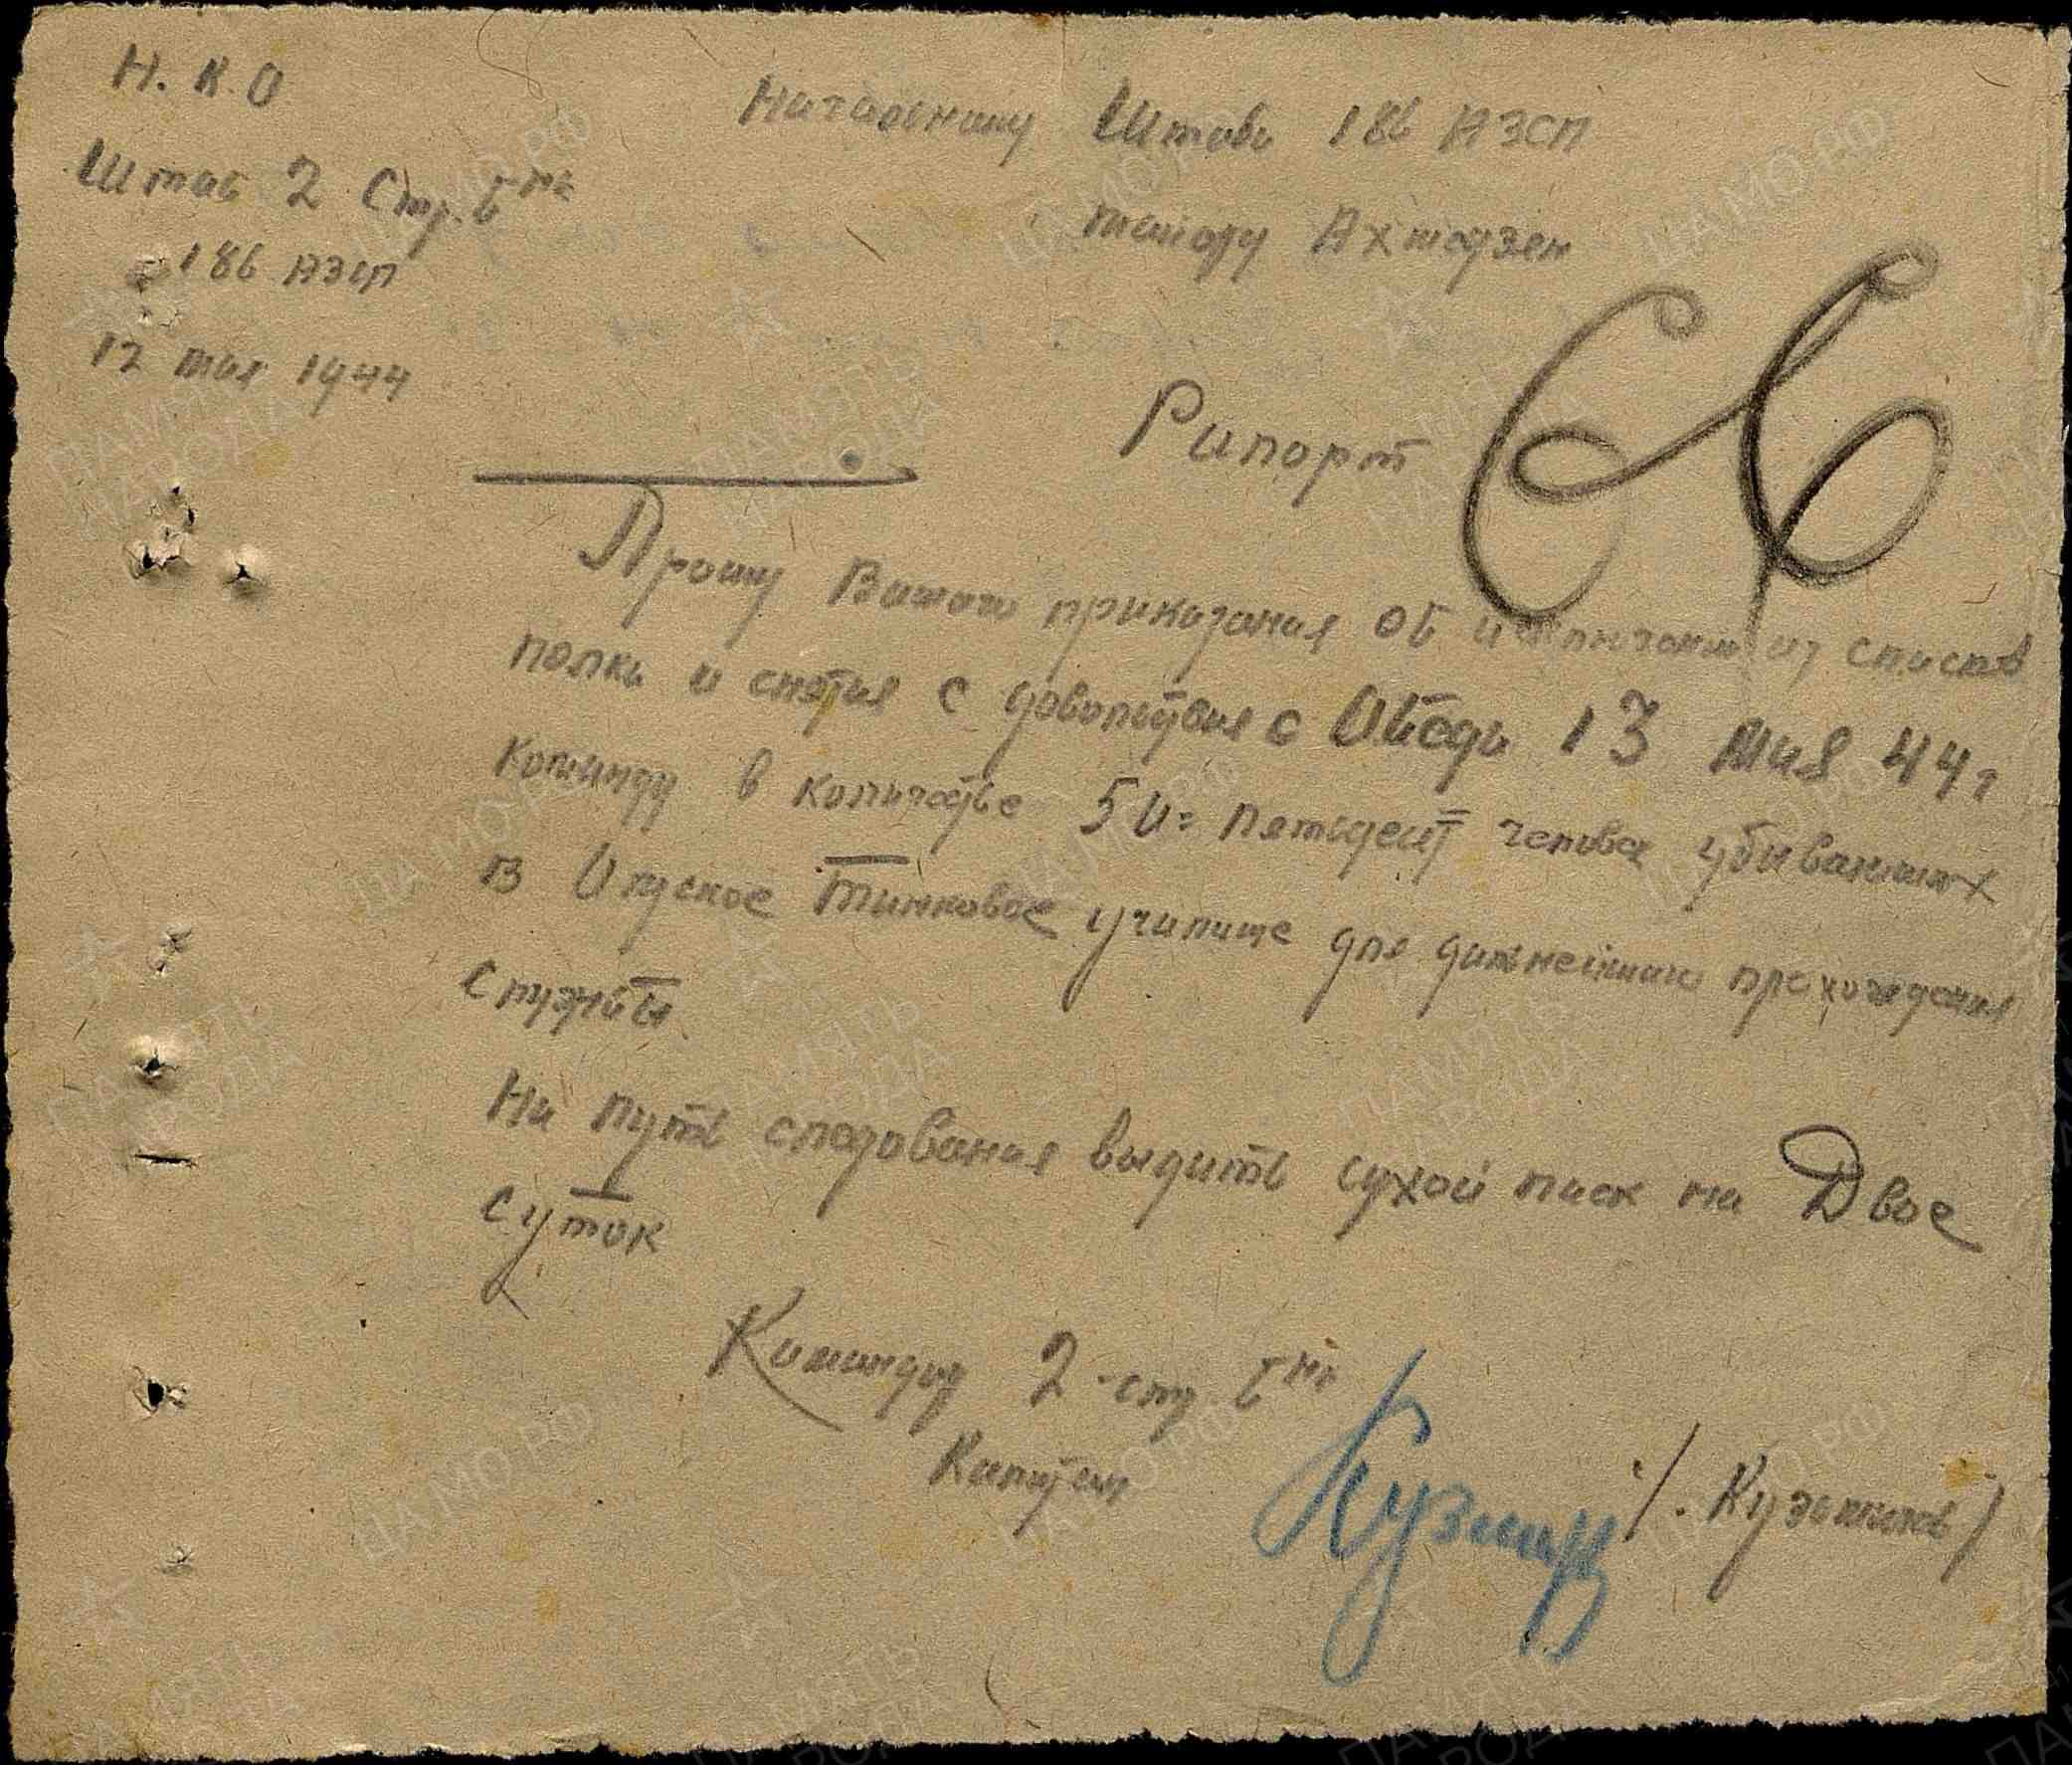 Н. К. О
Штаб 2 Стр. б-на
186 АЗСП
12 мая 1944
Начальнику Штаба 186 АЗСП
майору
Рапорт
Прошу Вашего приказания об из списков
полка и снятия с довольствия с Обеда 13 мая 44 г
команду в количестве 50 = пятьдесят человек убывающих
в танковое училище для дальнейшего прохождения
службы
На путь следования выдать сухой паек на Двое
суток
Командир 2 стр б-на
Капитан